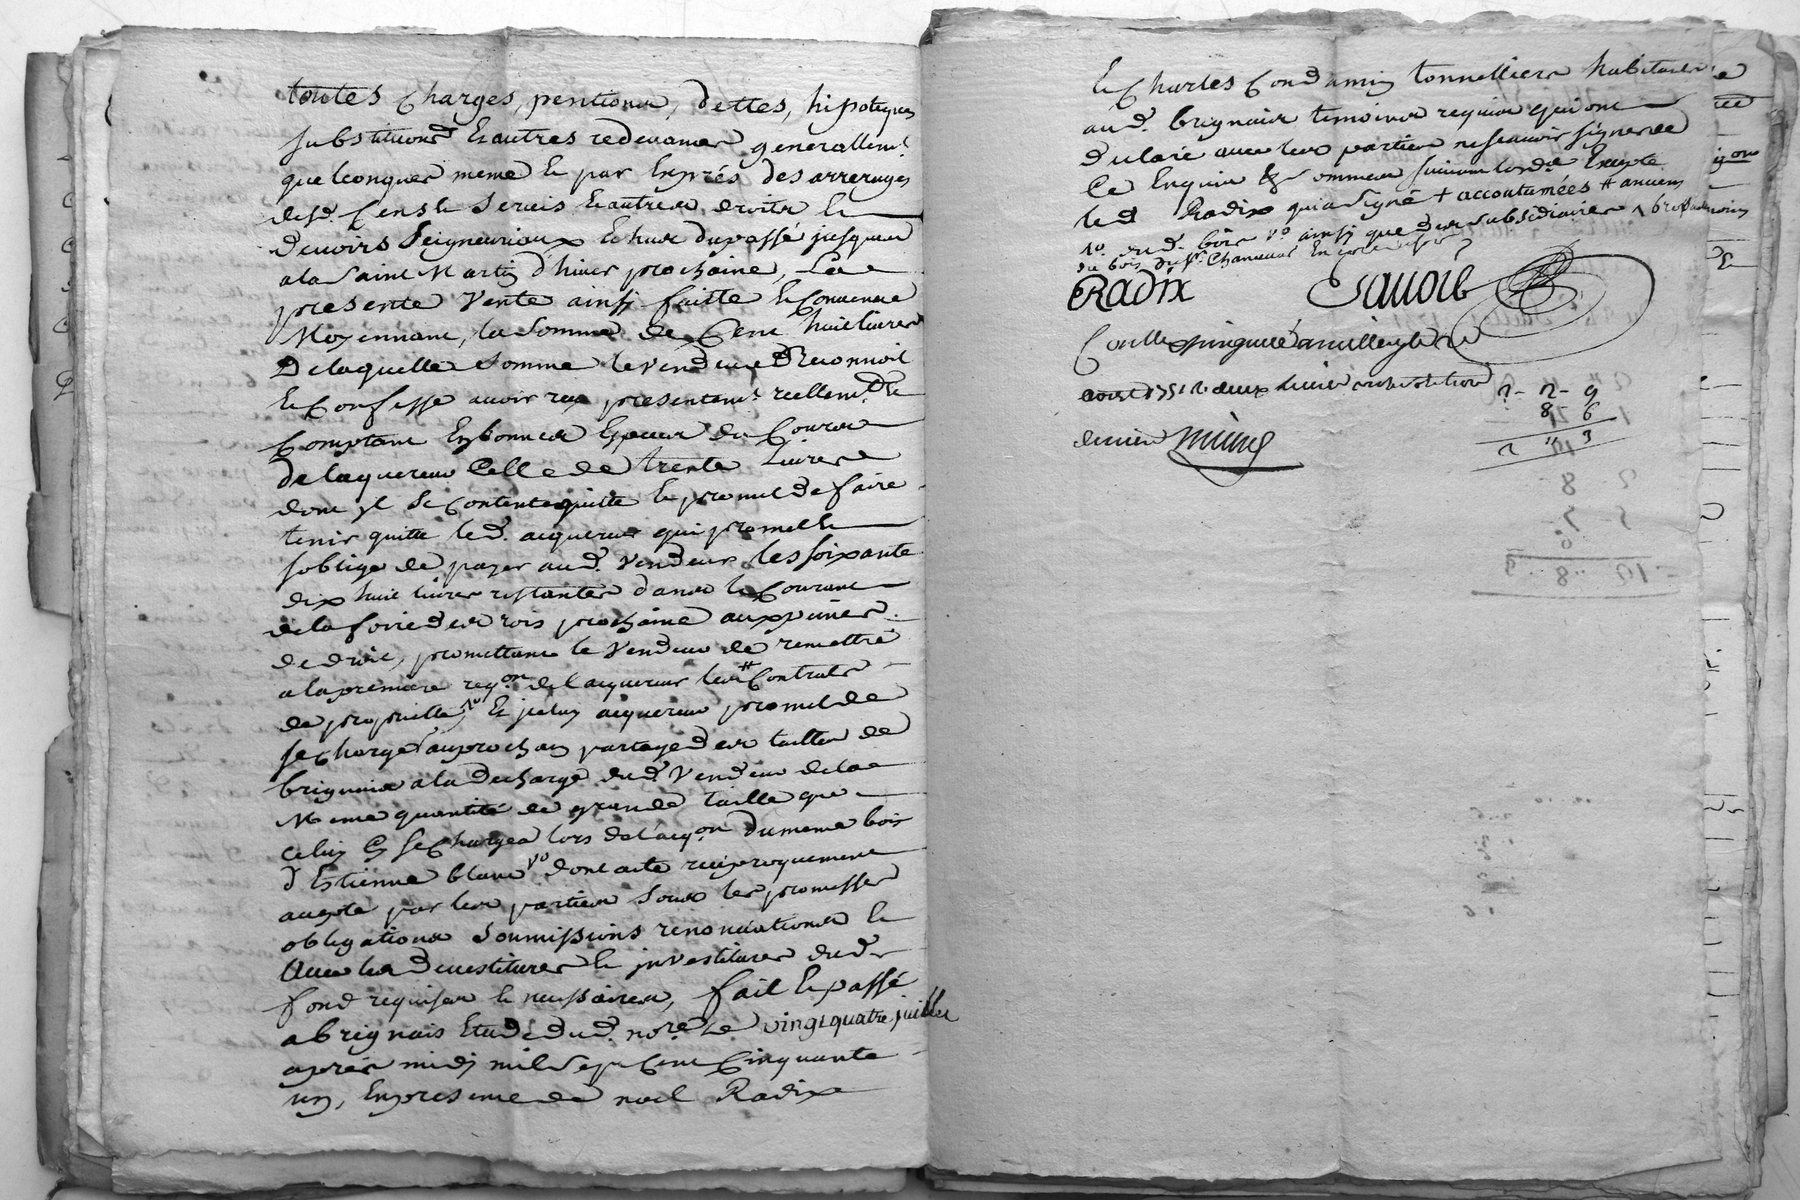 toutes Charges, pentions, dettes, hipoteques
substitutions Et autres redevances generallemt.
quelconques meme Et par Exprés des arrerages
desd. Cens Et Servis Et autres droits Et
devoirs Seigneuriaux Echus du passé jusques
a la Saint Martin d'hiver prochaine, La
presente Vente ainsy faitte Et Convenue
Moyennant, la Somme de Cent huit livres
De laquelle Somme le Vendeur Reconnoit
Et Confesse avoir reçu presentemt. reellemt. Et
Comptant En bonnes Especes du Cours
de laquereur Celle de trente Livres
dont il Se Contente quitte Et promet de faire
tenir quitte led. acquereur qui promet Et
s'oblige de payer aud. Vendeur les soixante
dix huit livres restantes dans le Courant
de la foire des rois prochaine aux peines
de droit, promettant le Vendeur de remettre
a la premiere reqon. de l'acquereur les # Contrats
de proprietté 1o Et jceluy acquereur promet de
se Charger au prochain partage des tailles de
brignais a la decharge dud. Vendeur de la
Meme quantité de grande taille que
celuy Cy se Chargea lors de l'acqon. du meme bois
d'Estienne blanc Vo dont acte reciproquement
accepté par les parties Sous les promesses
obligations Soumissions renonciations Et
Avec les devestitures Et jnvestitures dud.
fond requises Et necessaires, fait Et passé
a brignais Etude dud. nore. Le vingt quatre juillet
apres midy mil Sept Cent Cinquante
un, En presence de noel Radix
Et Charles Condamin tonnelliers habitants
aud. brignais temoins requis qui ont
declaré avec les parties ne scavoir signer de
Ce Enquis & Sommés suivant lord. Excepté
led Radix qui a Signé + accoutumées # anciens
1o. dud. bois Vo. ainsy que des subsidiaires
du bois dud. Sr. Chanavas
Radix
Savoie
Conllé a brignais le
aoust 1751 R. deux livres
deniers
2 - 2 - 9
8 6
2 " 3